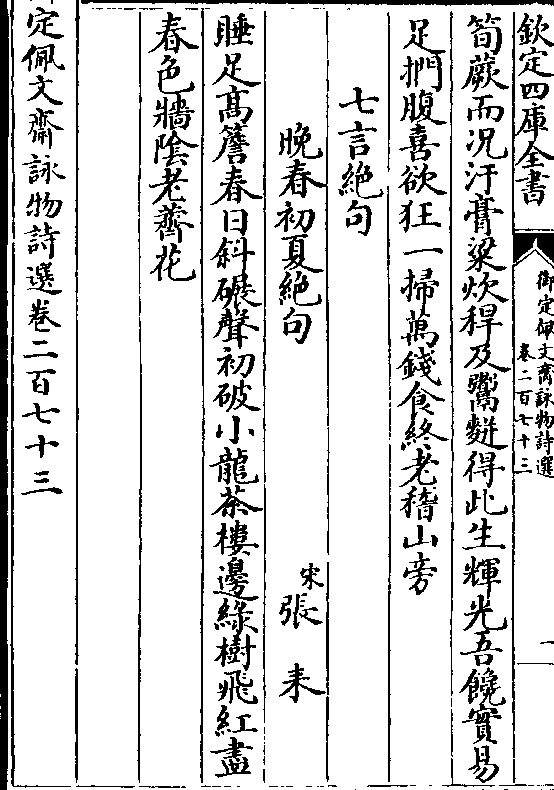 欽定四庫全書
御定佩文齋詠物詩選
卷二百七十三
一
筍蕨而况汙膏粱炊稗及鬻麷得此生輝光吾饞實易
足捫腹喜欲狂一掃萬錢食終老稽山旁
七言絶句
晚春初夏絶句
宋張耒
睡足髙簷春日斜碾聲初破小龍茶樓邊綠樹飛紅盡
春色牆陰老薺花
定佩文齋詠物詩選卷二百七十三